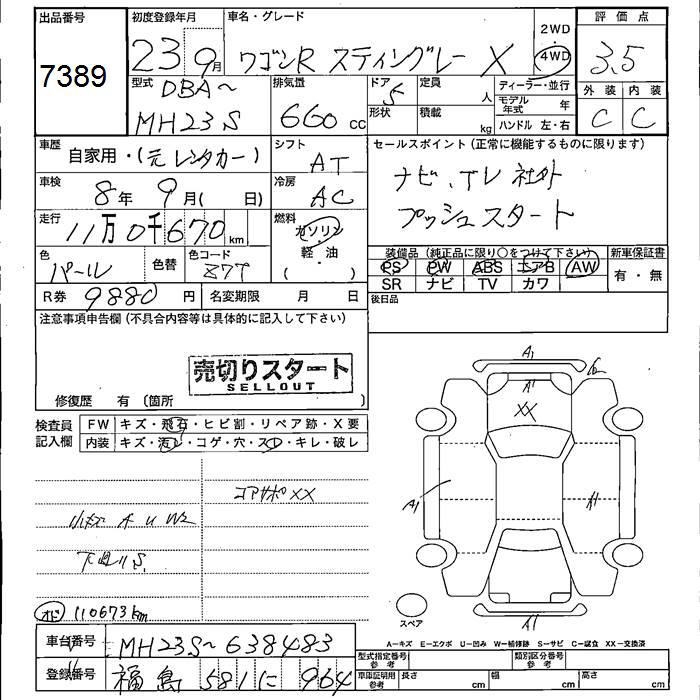 出品番号
7389
初度登録年月
23 9月
車名・グレード
ワゴンR スティングレー X
2WD
4WD
評価点
3.5
型式
DBA~
MH23S
排気量
660 cc
ドア
5
形状
定員
人
積載
kg
ディーラー・並行
モデル年式 年
ハンドル 左・右
外装 内装
C C
車歴
自家用・(元レンタカー)
シフト
AT
セールスポイント(正常に機能するものに限ります)
ナビ、TV 社外
プッシュスタート
車検
8年 9月( 日)
冷房
AC
走行
11万0千670km
燃料
ガソリン
軽・油
( ・ )
色
パール
色替
色コード
Z7T
装備品(純正品に限り○をつけて下さい)
新車保証書
PS PW ABS エアB AW
有・無
SR ナビ TV カワ
R券 9880円
名変期限 月 日
後日品
注意事項申告欄(不具合内容等は具体的に記入して下さい)
売切りスタート
SELLOUT
修復歴 有(箇所 )
検査員
記入欄
FW キズ・飛石・ヒビ割・リペア跡・X要
内装 キズ・汚レ・コゲ・穴・スレ・キレ・破レ
コアサポXX
小キズ A U W2
下廻りS
オド 110673km
A1
A1
XX
A1
A1
A1
スペア
A-キズ E-エクボ U-凹み W-補修跡 S-サビ C-腐食 XX-交換済
車台番号 MH23S~638483
登録番号 福島 581 に 964
型式指定番号
参考
類別区分番号
参考
車庫証明用
参考
長さ cm
幅 cm
高さ cm